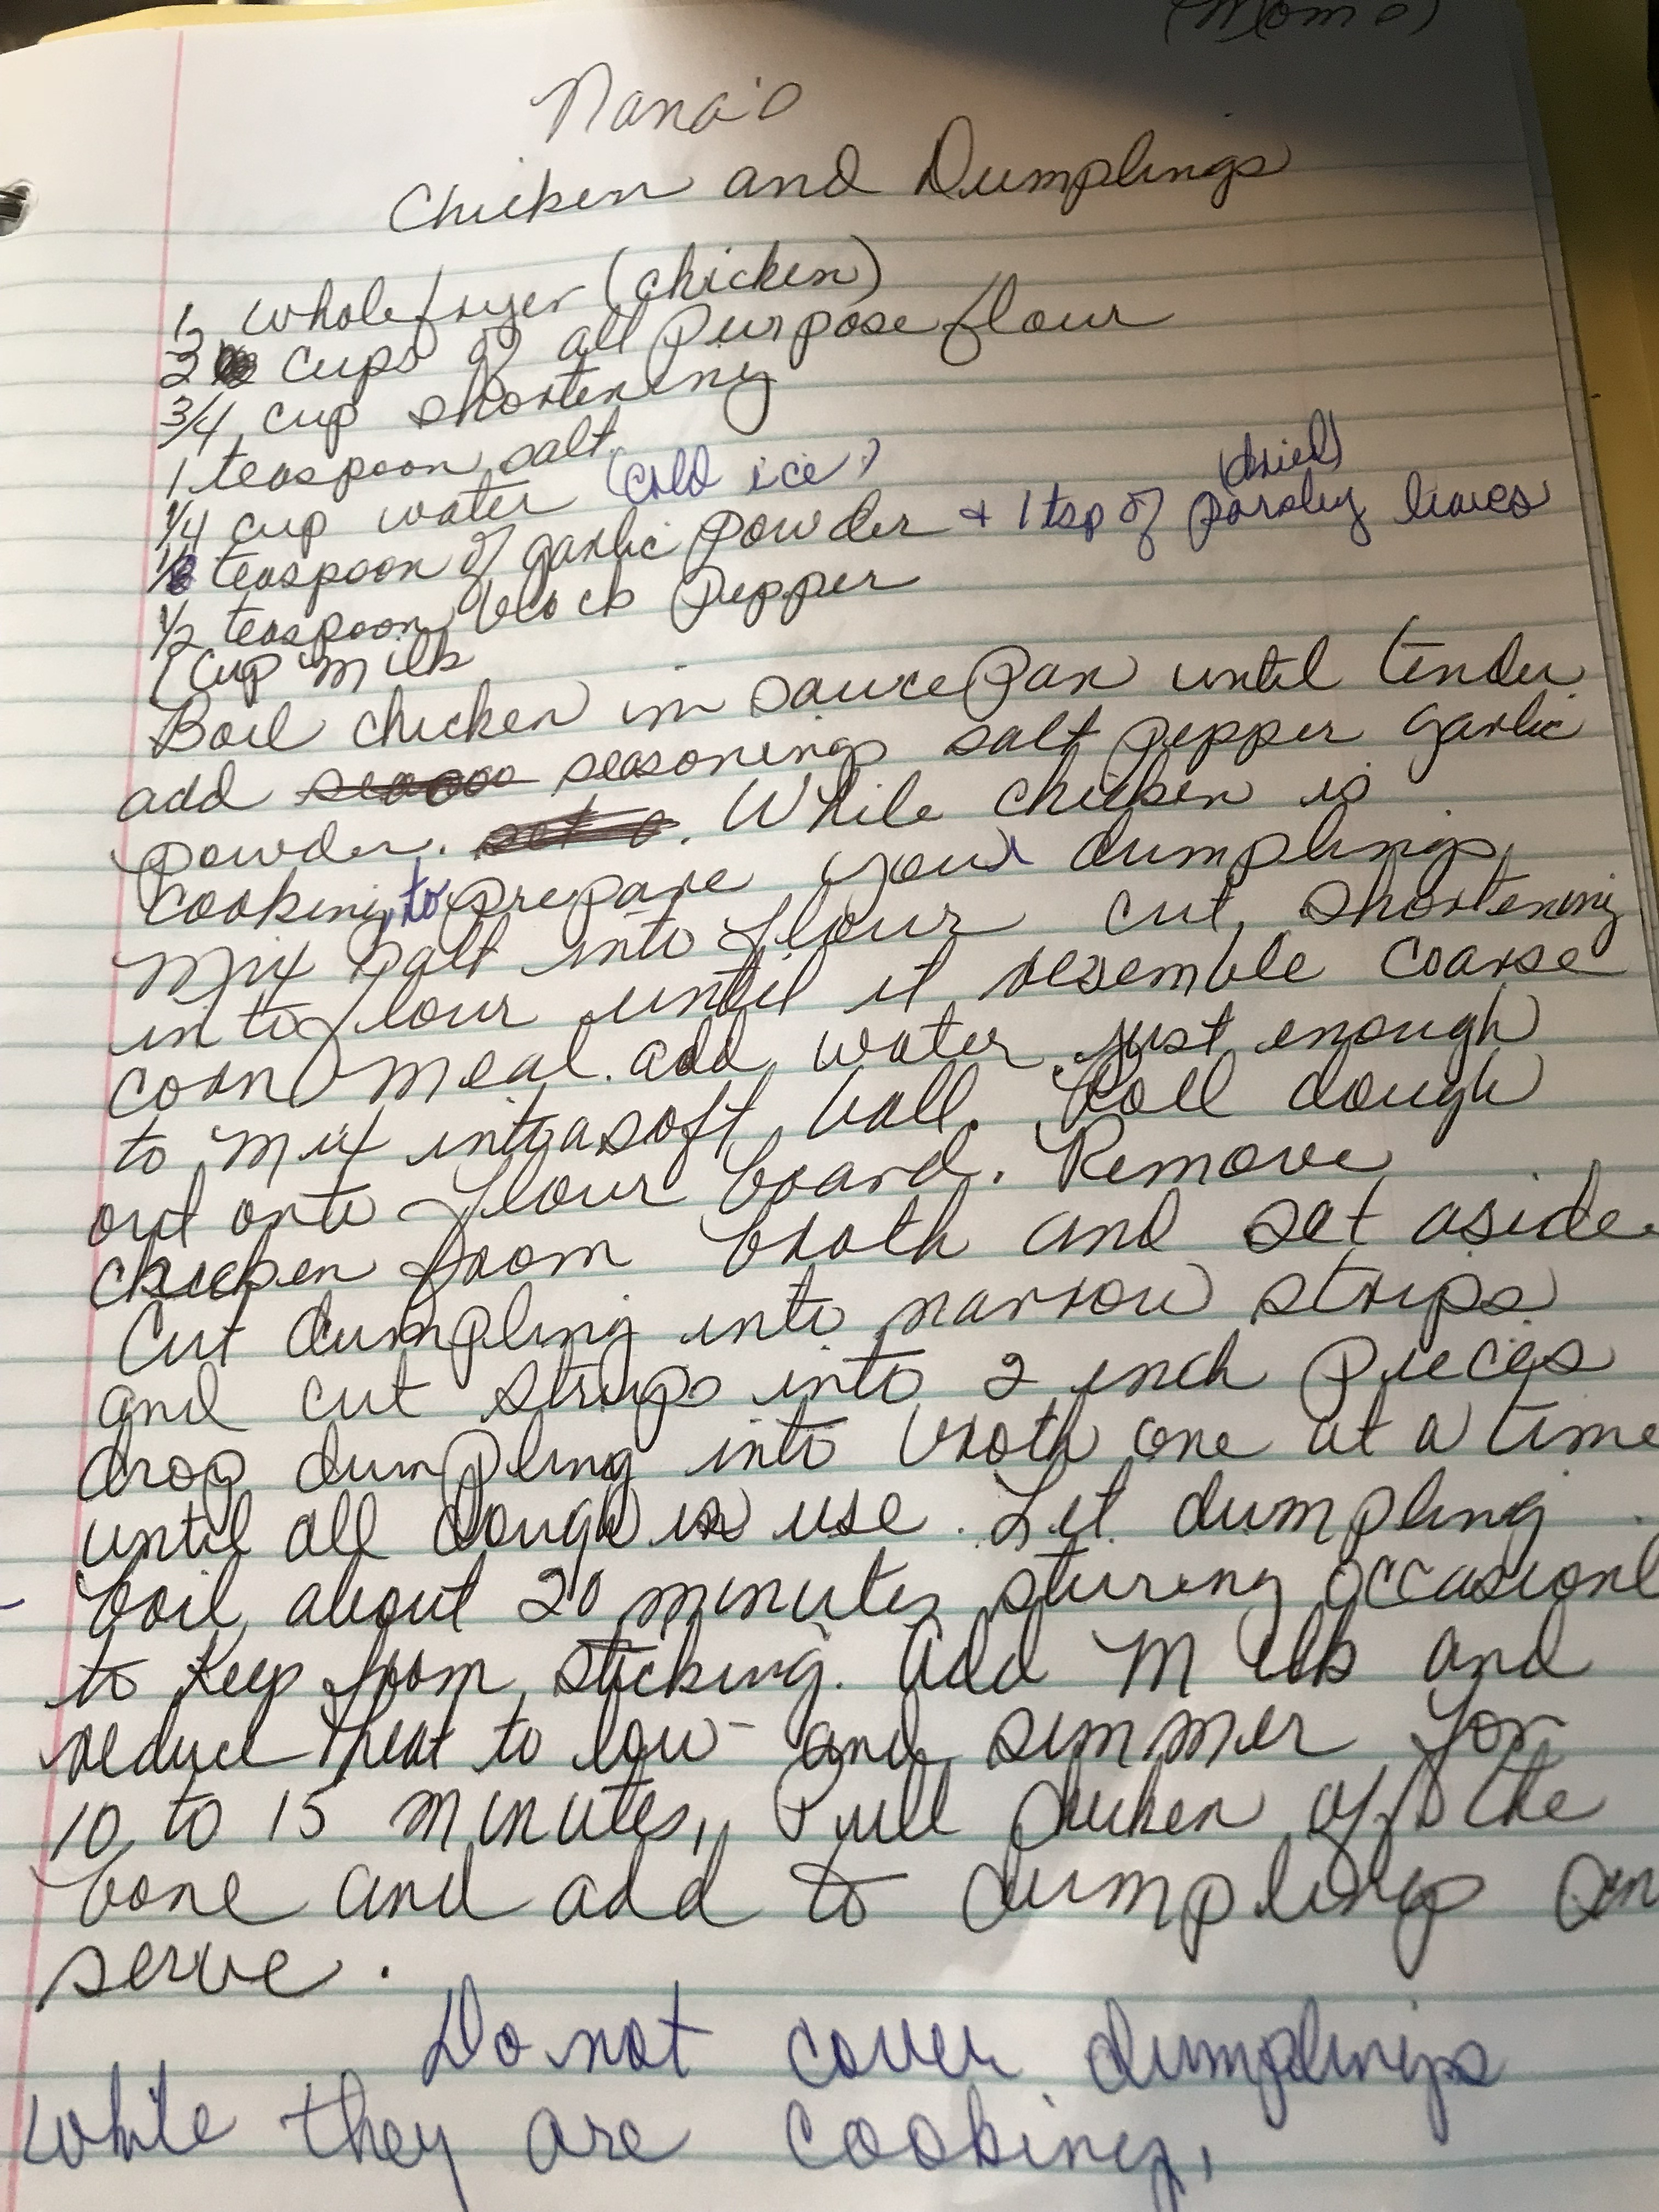 (Mom's)
Nana's
Chicken and Dumplings
1 whole fryer (chicken)
2 cups of all Purpose flour
3/4 cup shortening
1 teaspoon salt
1/4 cup water (cold ice)
teaspoon of garlic powder + 1 tsp of (dried) parsley leaves
1/2 teaspoon black Pepper
1 Cup milk
Boil chicken in sauce Pan until tender
add seasonings salt pepper garlic
powder. While chicken is
cooking, to prepare your dumplings
Mix salt into flour cut shortening
into flour until it resemble coarse
corn meal. add water just enough
to mix into a soft ball. Roll dough
out onto flour board. Remove
chicken from broth and set aside.
Cut dumpling into narrow strips
and cut strips into 2 inch Pieces
drop dumpling into broth one at a time
until all dough is use. Let dumpling
boil about 20 minutes stiring occasionl
to keep from sticking. Add Milk and
reduce heat to low and simmer for
10 to 15 minutes, Pull chicken off the
bone and add to dumplings an
serve.
Do not cover dumplings
while they are cooking.